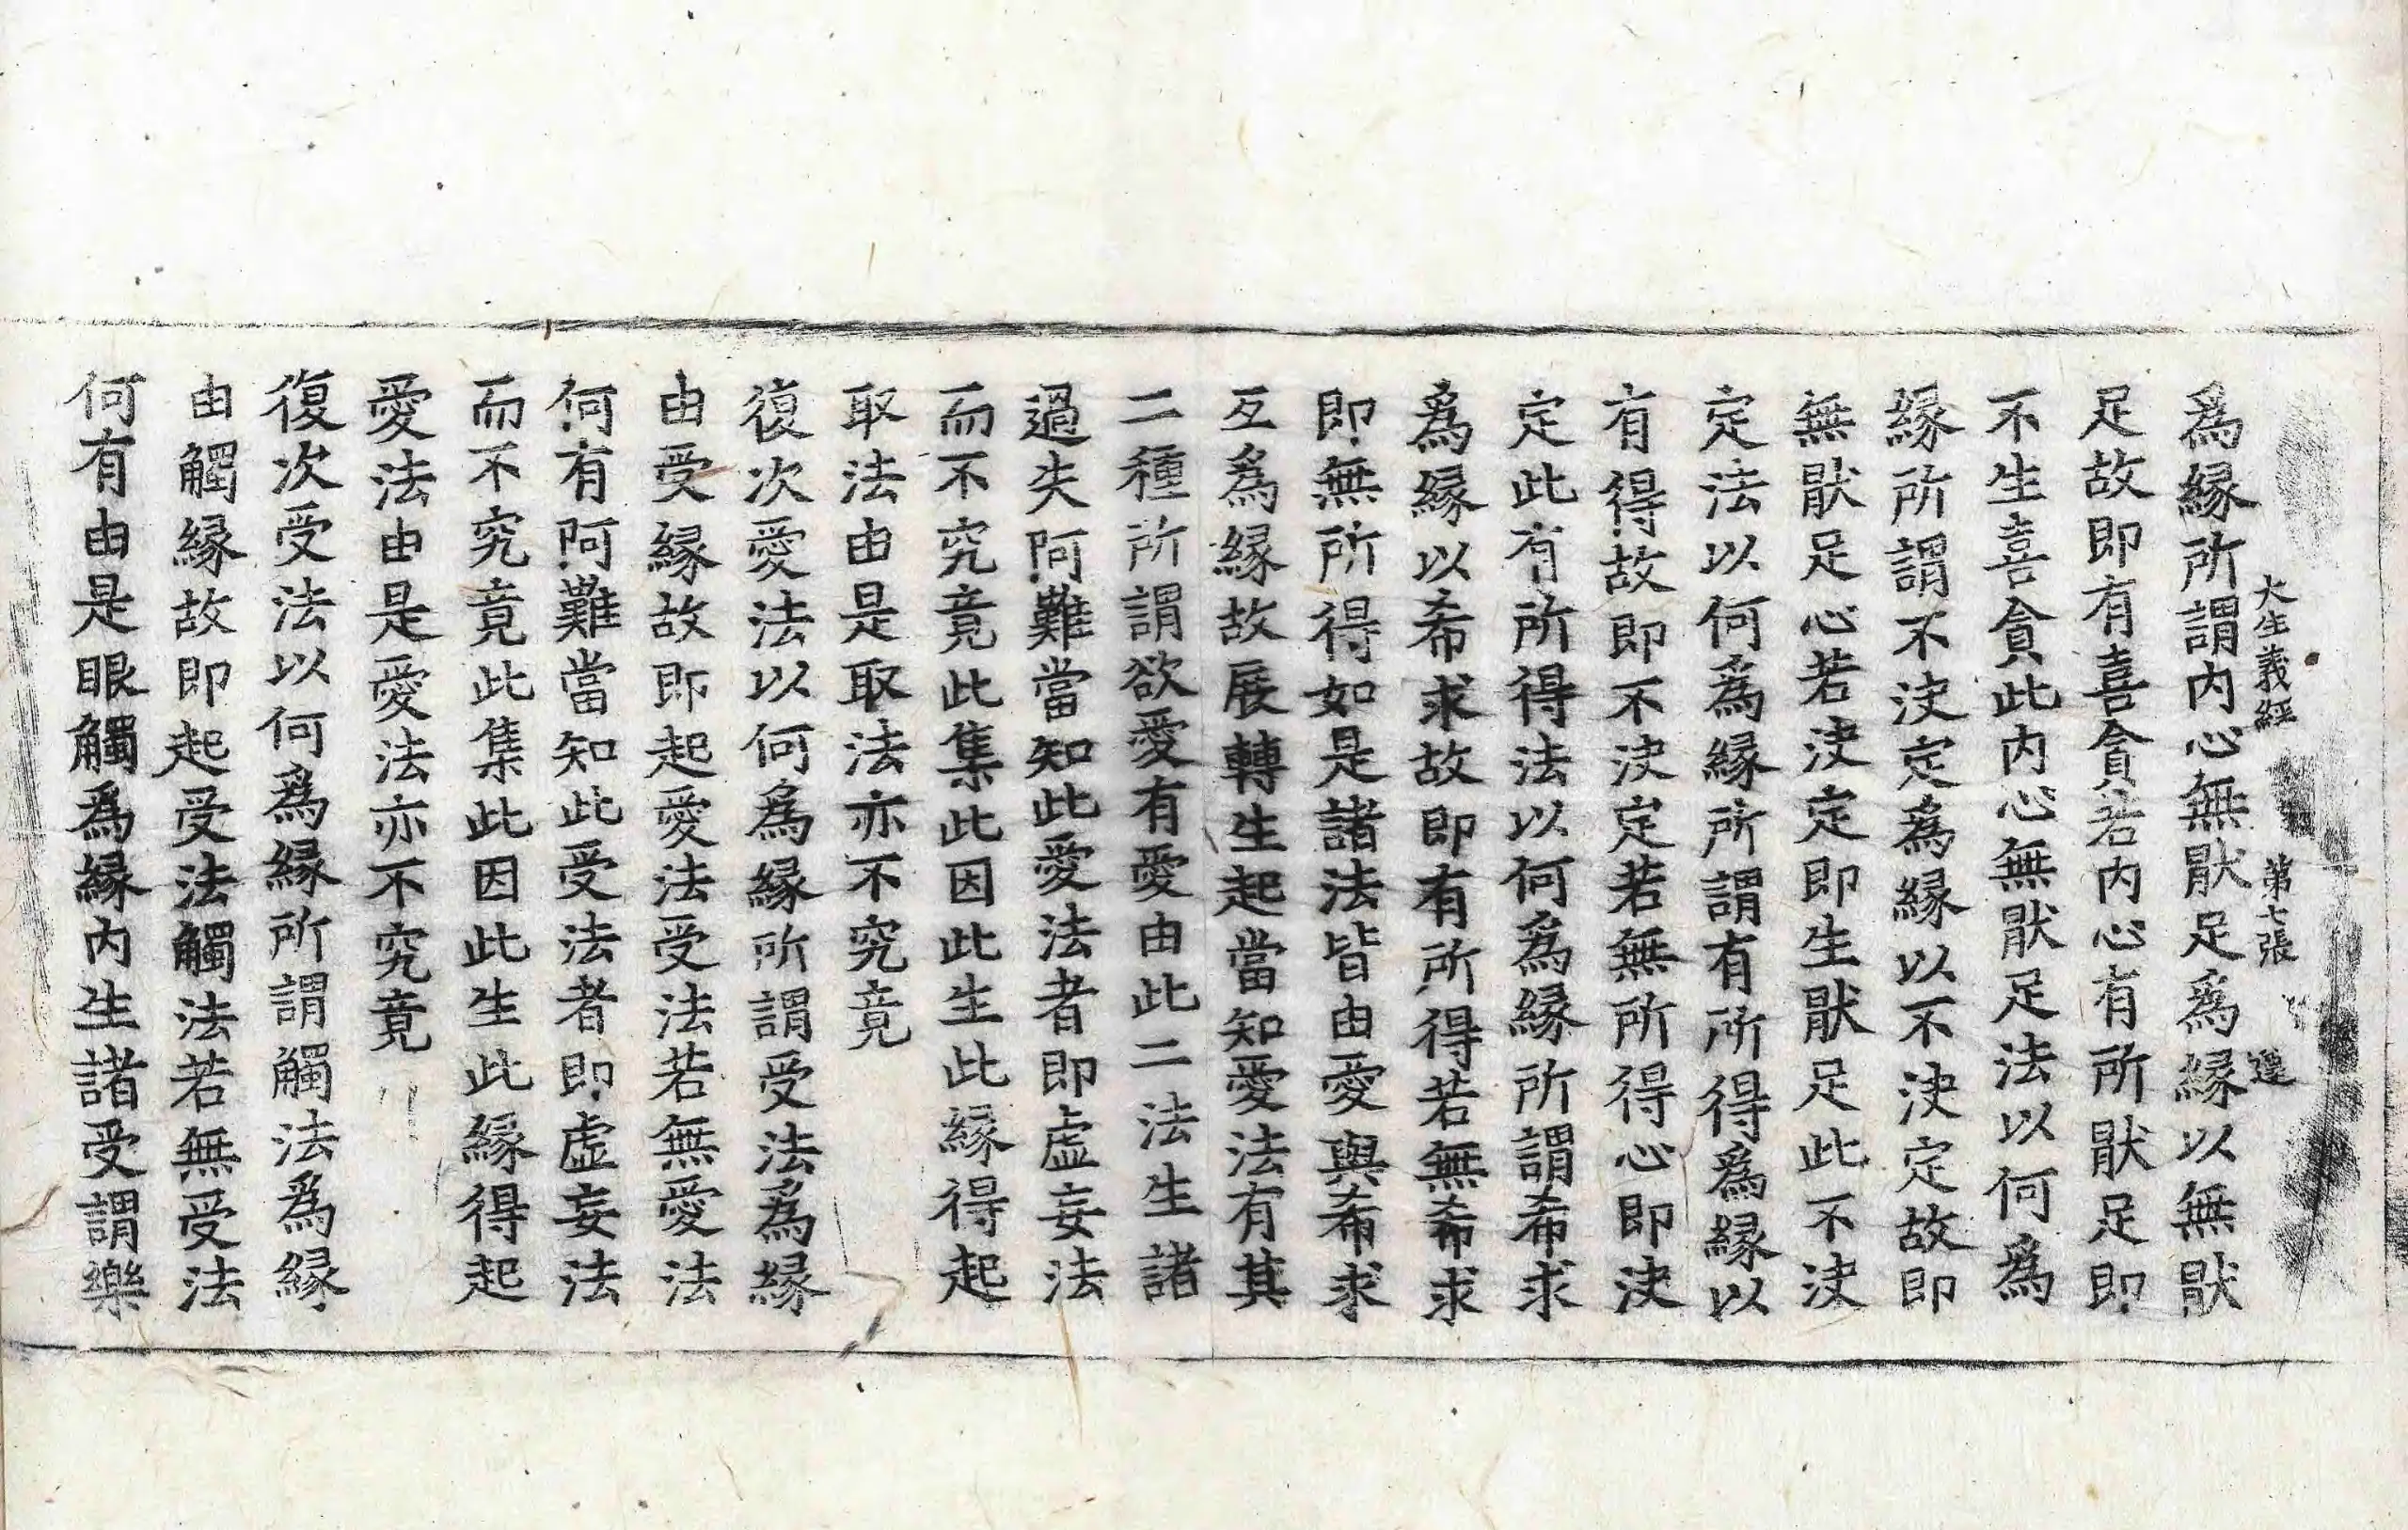 大生義経 第七張 遷
爲縁所謂内心無猒足爲縁以無猒
足故即有喜貪若内心有所猒足即
不生喜貪此内心無猒足法以何爲
縁所謂不决定爲縁以不决定故即
無猒足心若决定即生猒足此不决
定法以何爲縁所謂有所得爲縁以
有得故即不决定若無所得心即决
定此有所得法以何爲縁所謂希求
爲縁以希求故即有所得若無希求
即無所得如是諸法皆由愛與希求
互爲縁故展轉生起當知愛法有其
二種所謂欲愛有愛由此二法生諸
過失阿難當知此愛法者即虚妄法
而不究竟此集此因此生此縁得起
取法由是取法亦不究竟
復次愛法以何爲縁所謂受法爲縁
由受縁故即起愛法受法若無愛法
何有阿難當知此受法者即虚妄法
而不究竟此集此因此生此縁得起
愛法由是愛法亦不究竟
復次受法以何爲縁所謂觸法爲縁
由觸縁故即起受法觸法若無受法
何有由是眼觸爲縁内生諸受謂樂